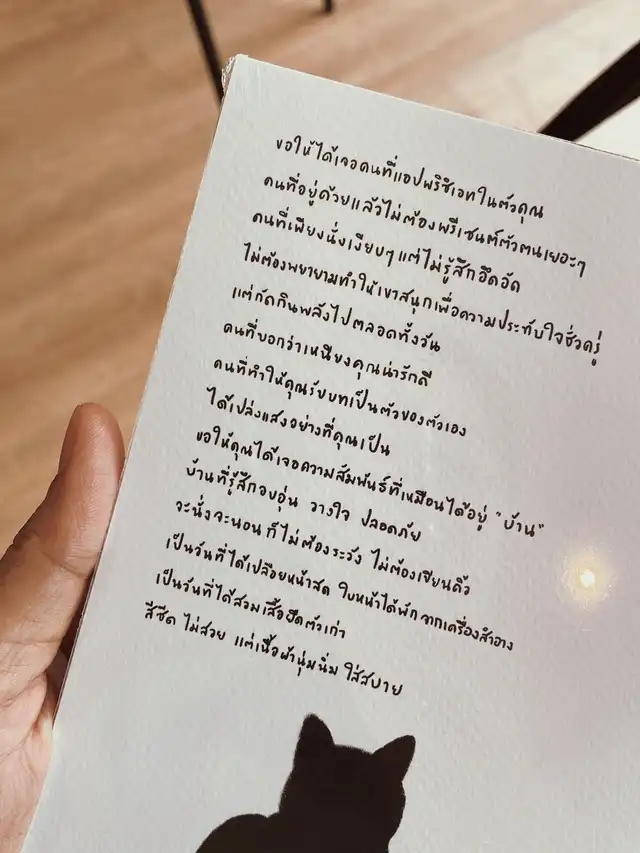 ขอให้ได้เจอคนที่แอปพริชิเอทในตัวคุณ
คนที่อยู่ด้วยแล้วไม่ต้องพรีเซนต์ตัวตนเยอะๆ
คนที่เพียงนั่งเงียบๆ แต่ไม่รู้สึกอึดอัด
ไม่ต้องพยายามทำให้เขาสนุกเพื่อความประทับใจชั่วครู่
แต่กัดกินพลังไปตลอดทั้งวัน
คนที่บอกว่าเหนียงคุณน่ารักดี
คนที่ทำให้คุณรับบทเป็นตัวของตัวเอง
ได้เปล่งแสงอย่างที่คุณเป็น
ขอให้คุณได้เจอความสัมพันธ์ที่เหมือนได้อยู่ "บ้าน"
บ้านที่รู้สึกอบอุ่น วางใจ ปลอดภัย
จะนั่งจะนอน ก็ไม่ต้องระวัง ไม่ต้องเขียนคิ้ว
เป็นวันที่ได้เปลือยหน้าสด ใบหน้าได้พักจากเครื่องสำอาง
เป็นวันที่ได้สวมเสื้อยืดตัวเก่า
สีซีด ไม่สวย แต่เนื้อผ้านุ่มนิ่ม ใส่สบาย